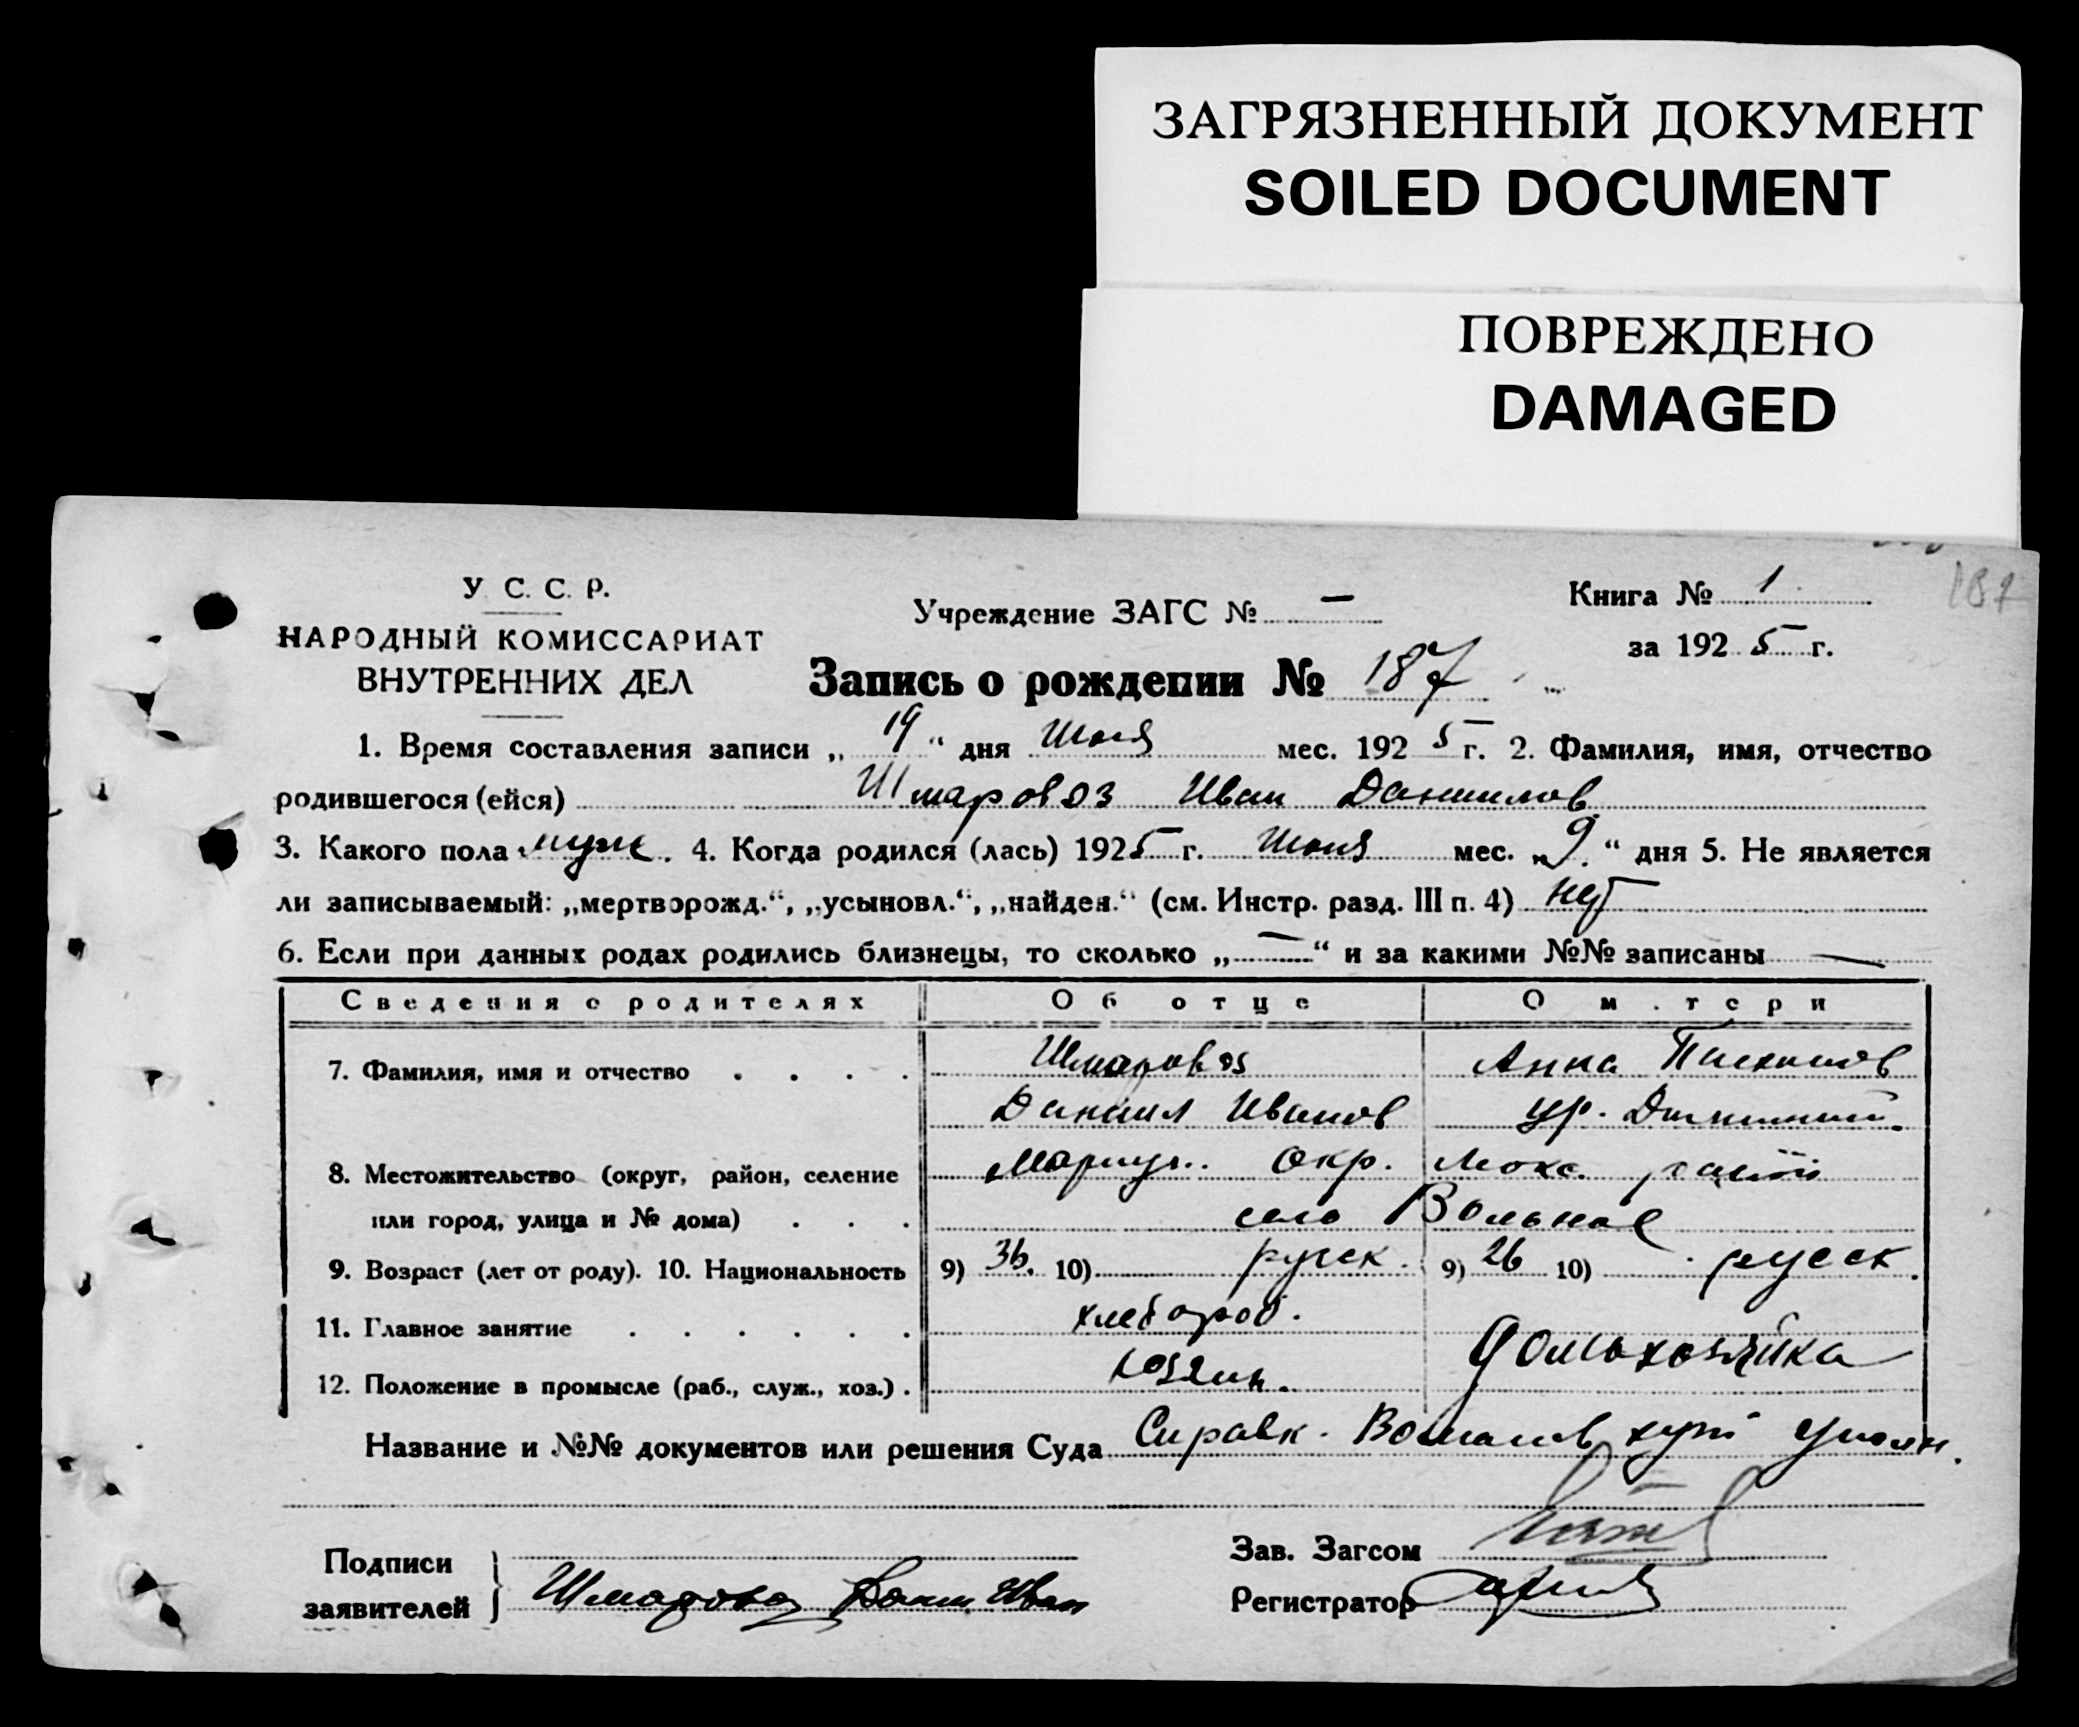 ЗАГРЯЗНЕННЫЙ ДОКУМЕНТ
SOILED DOCUMENT
ПОВРЕЖДЕНО
DAMAGED
187
У. С. С. Р.
НАРОДНЫЙ КОМИССАРИАТ
ВНУТРЕННИХ ДЕЛ
Учреждение ЗАГС № —
Книга № 1
за 1925 г.
Запись о рождении № 187
1. Время составления записи „19“ дня Июня мес. 1925 г. 2. Фамилия, имя, отчество
родившегося (ейся) Шмаровоз Иван Данилов
3. Какого пола муж. 4. Когда родился (лась) 1925 г. Июня мес. „9.“ дня 5. Не является
ли записываемый: „мертворожд.“, „усыновл.“, „найден.“ (см. Инстр. разд. III п. 4) нет
6. Если при данных родах родились близнецы, то сколько „—“ и за какими №№ записаны —
Сведения о родителях Об отце О м.тери
7. Фамилия, имя и отчество . . . . Шмаровоз Анна
Даниил Иванов ур.
8. Местожительство (округ, район, селение Мариуп. Окр. район
или город, улица и № дома) . . . село Вольное
9. Возраст (лет от роду). 10. Национальность 9) 36. 10) русск. 9) 26 10) русск.
11. Главное занятие . . . . . . хлебороб. домохозяйка
12. Положение в промысле (раб., служ., хоз.) . хозяин.
Название и №№ документов или решения Суда Справк.
Подписи
заявителей } Шмаровоз Дани Иван
Зав. Загсом
Регистратор